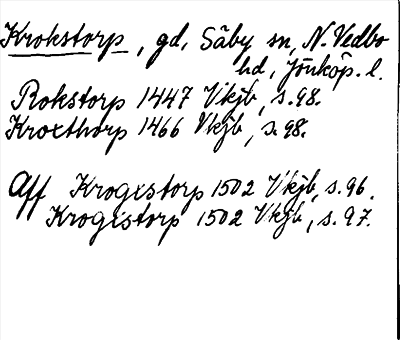 Krokstorp, gd, Säby sn, N. Vedbo
hd, Jönköp. l.
Rokstorp 1447 Vkjb, s. 98.
Kroxthorp 1466 Vkjb, s. 98.
Aff Krogxstorp 1502 Vkjb, s. 96.
Krogxstorp 1502 Vkjb, s. 97.